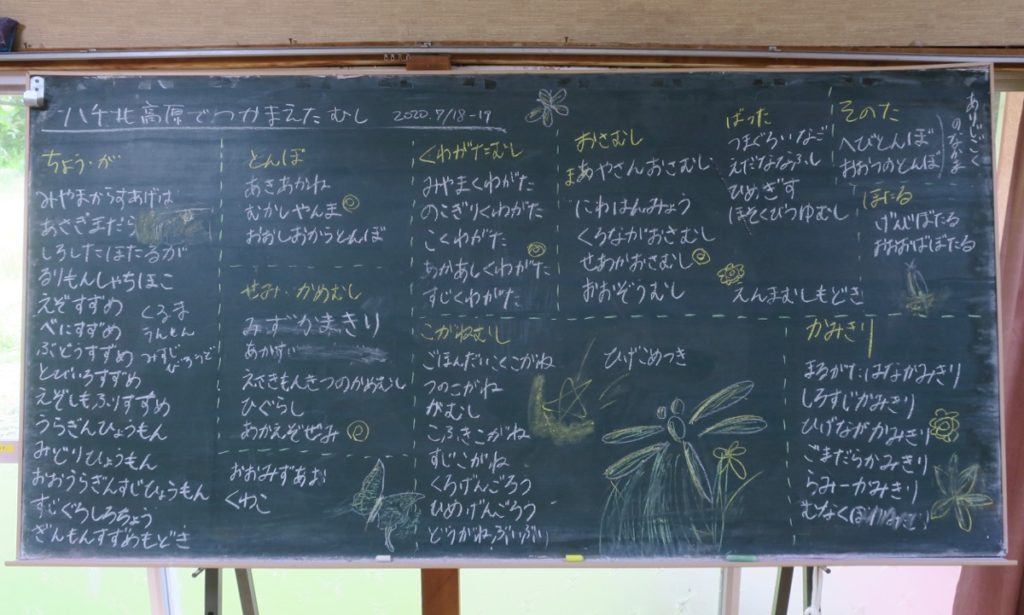 ハチ北高原でつかまえたむし 2020.7/18-19
ちょう・が
みやまからすあげは
あさぎまだら
しろしたほたるが
るりもんしゃちほこ
えぞすずめ
べにすずめ
ぶどうすずめ
とびいろすずめ
えぞしもふりすずめ
うらぎんひょうもん
みどりひょうもん
おおうらぎんすじひょうもん
すじぐろしろちょう
ぎんもんすずめもどき
くるま
うんもん
みすじ
びろうど
とんぼ
あきあかね
むかしやんま
おおしおからとんぼ
せみ・かめむし
みずかまきり
あかすじ
えさきもんきつのかめむし
ひぐらし
あかえぞぜみ
おおみずあお
くわこ
くわがたむし
みやまくわがた
のこぎりくわがた
こくわがた
あかあしくわがた
すじくわがた
こがねむし
ごほんだいこくこがね
つのこがね
がむし
こふきこがね
すじこがね
くろげんごろう
ひめげんごろう
どうがねぶいぶい
おさむし
まあやさんおさむし
にわはんみょう
くろながおさむし
せあかおさむし
おおぞうむし
ひげこめつき
ばった
つまぐろいなご
えだななふし
ひめぎす
ほそくびつゆむし
えんまむしもどき
そのた
へびとんぼ
おおつのとんぼ
ありじごく
のなかま
ほたる
げんじぼたる
おおおばぼたる
かみきり
まるがたはなかみきり
しろすじかみきり
ひげながかみきり
ごまだらかみきり
らみーかみきり